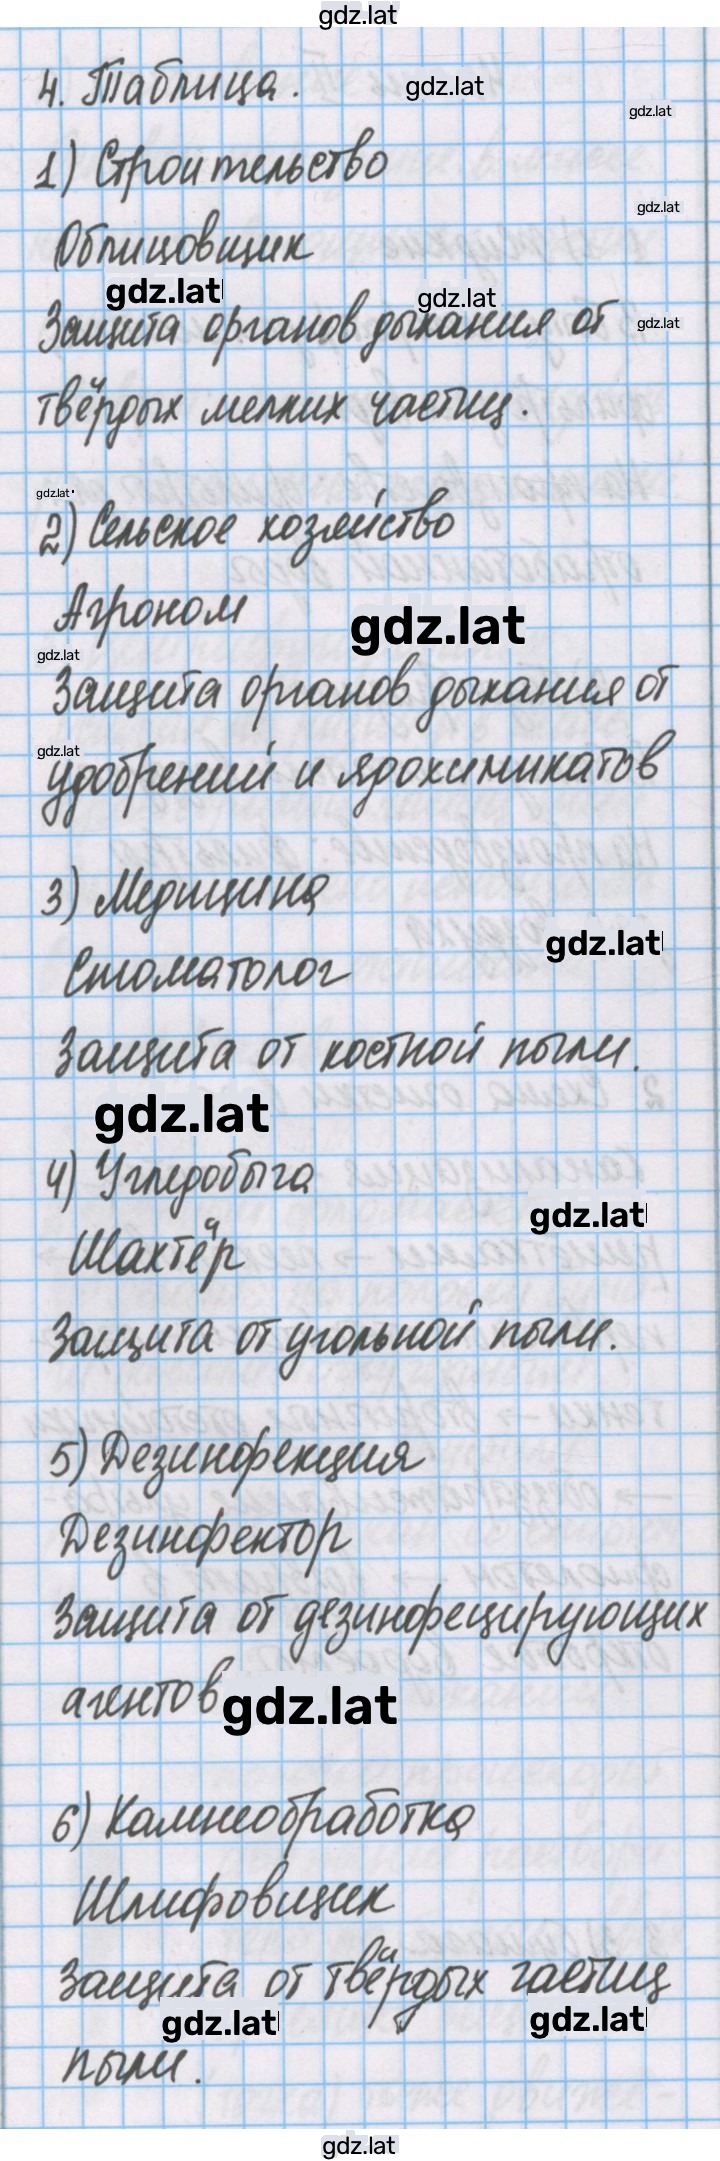 gdz.lat
4. Таблица.
gdz.lat
gdz.lat
1) Строительство
gdz.lat
Облицовщик
gdz.lat
gdz.lat
Защита органов дыхания от
gdz.lat
твёрдых мелких частиц.
gdz.lat
2) Сельское хозяйство
Агроном
gdz.lat
gdz.lat
Защита органов дыхания от
gdz.lat
удобрений и ядохимикатов
3) Медицина
gdz.lat
Стоматолог
Защита от костной пыли.
gdz.lat
4) Угледобыча
gdz.lat
Шахтёр
Защита от угольной пыли.
5) Дезинфекция
Дезинфектор
Защита от дезинфецирующих
агентов
gdz.lat
6) Камнеобработка
Шлифовщик
Защита от твёрдых частиц
gdz.lat
gdz.lat
пыли.
gdz.lat